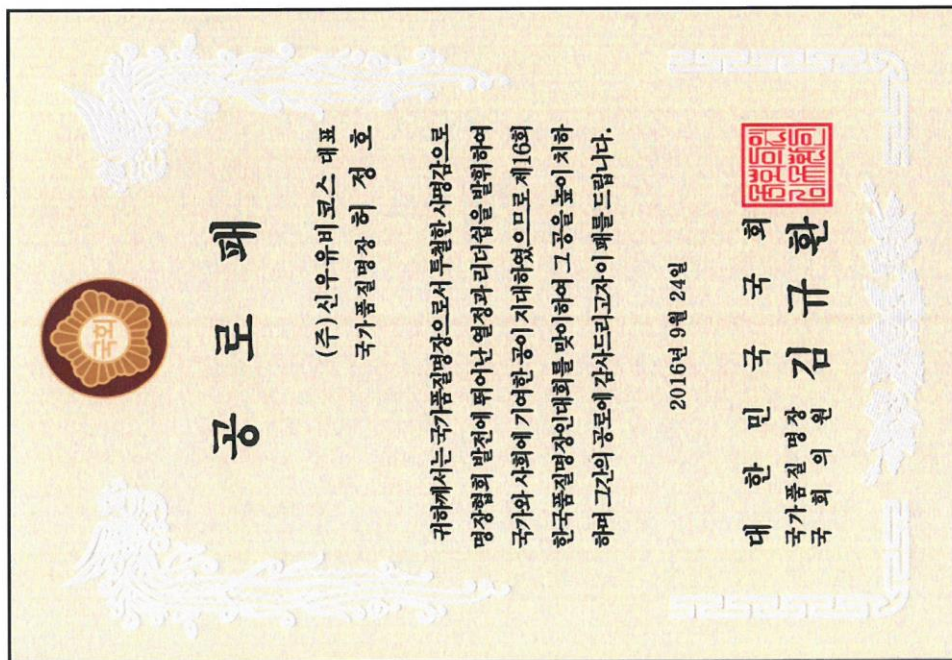 국회
공 로 패
(주)신우유비코스 대표
국가품질명장 허 정 호
귀하께서는 국가품질명장으로서 투철한 사명감으로
명장협회 발전에 뛰어난 열정과 리더쉽을 발휘하여
국가와 사회에 기여한 공이 지대하였으므로 제16회
한국품질명장인대회를 맞이하여 그 공을 높이 치하
하며 그간의 공로에 감사드리고자 이 패를 드립니다.
2016년 9월 24일
대 한 민 국 국 회
국가품질명장
국 회 의 원 김 규 환